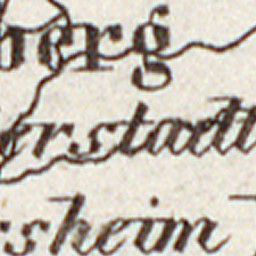 berg
erstadt
sheim